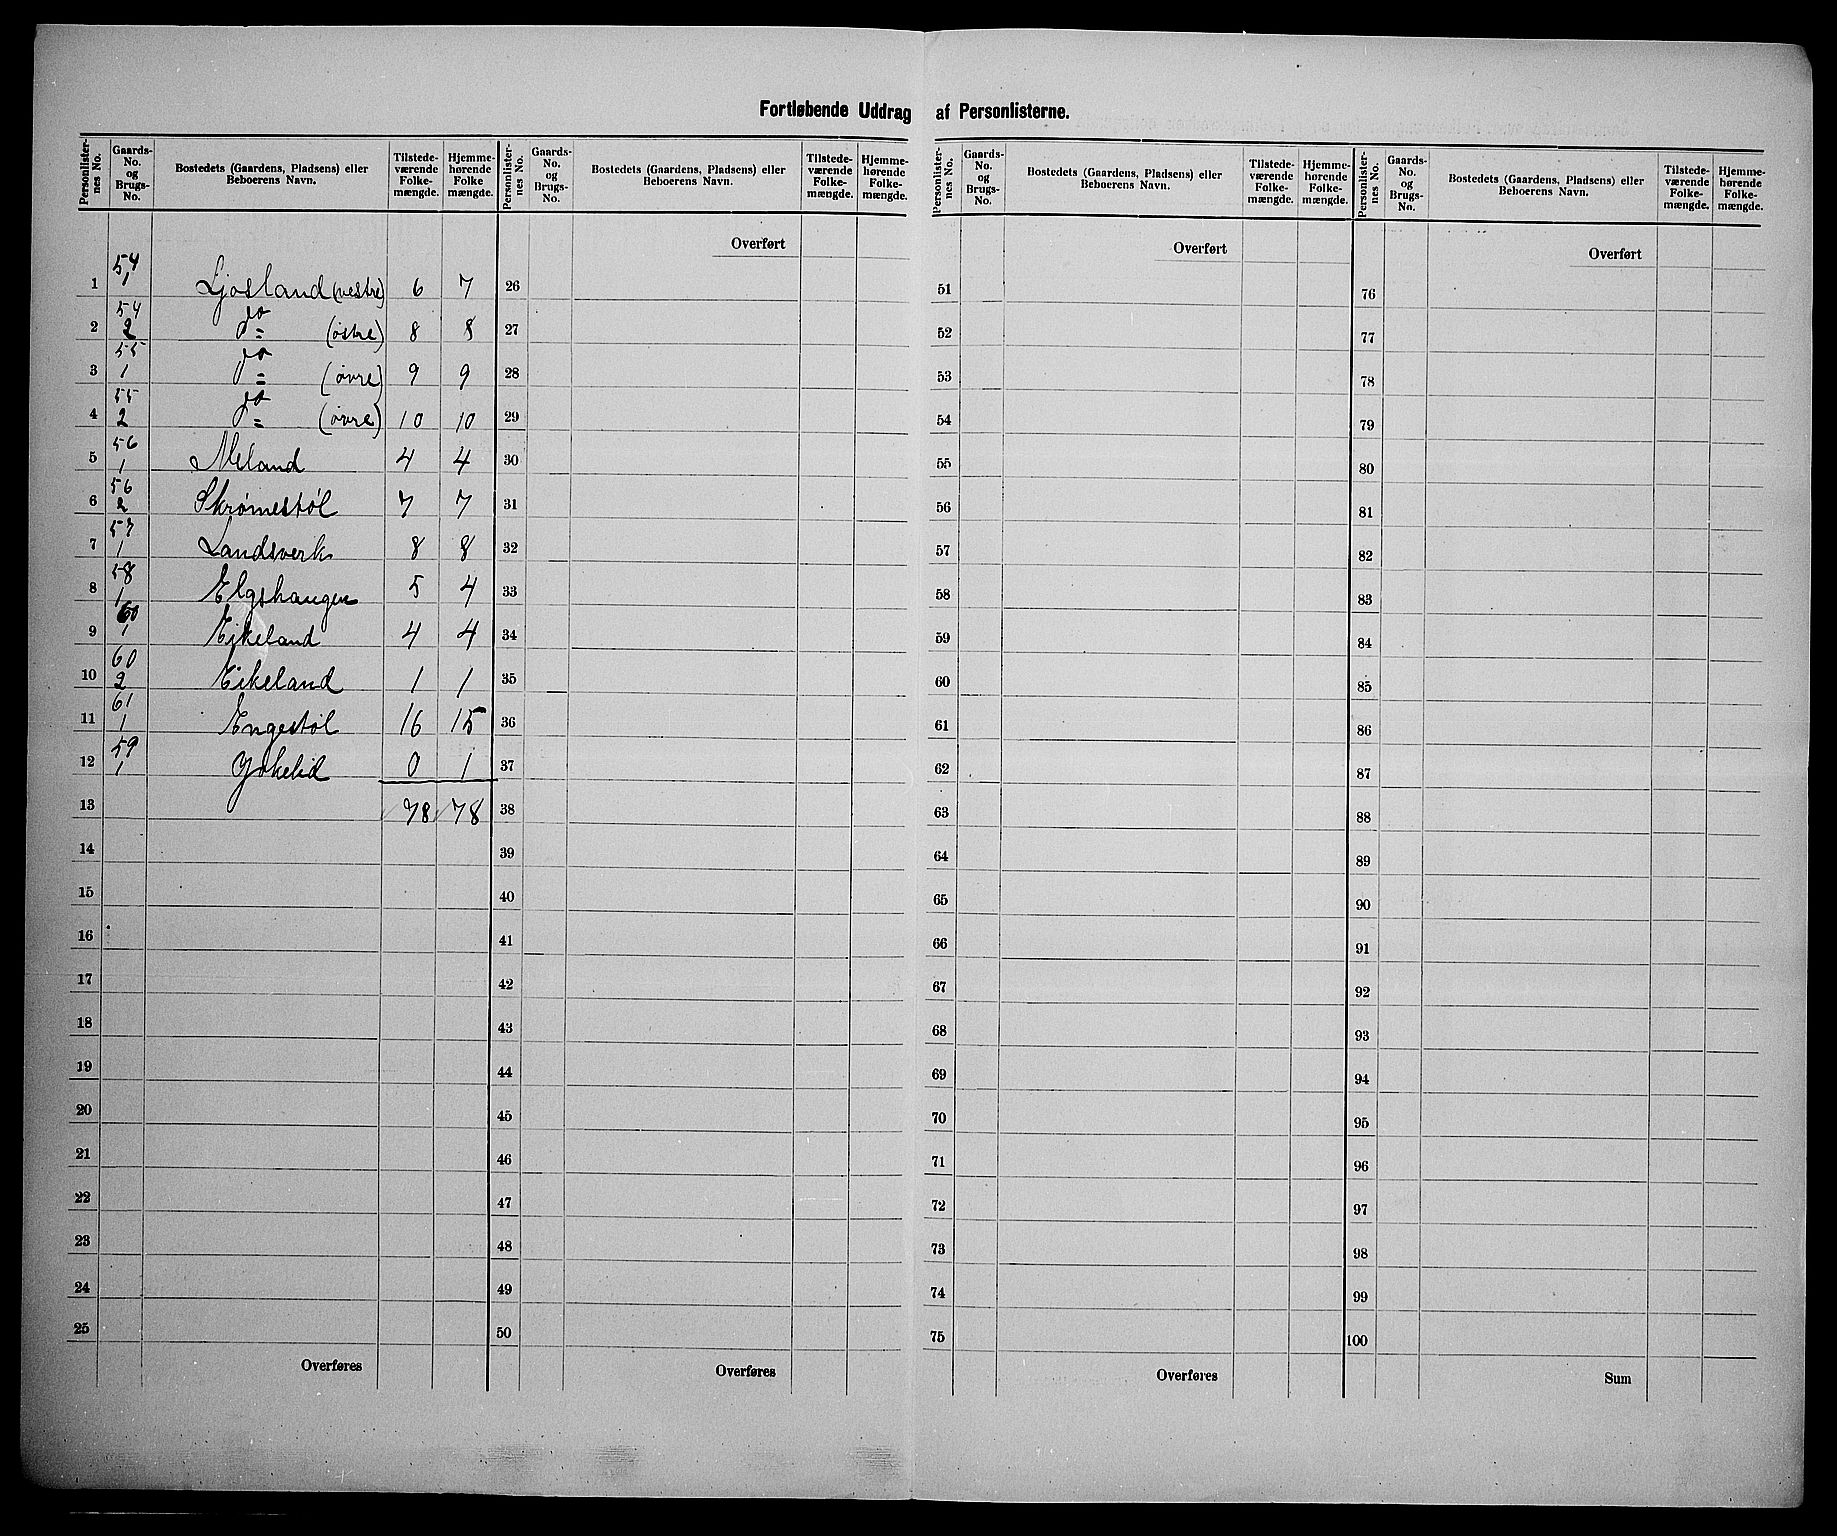 Fortløbende Uddrag af Personlisterne.
Personlister-nes No. | Gaards-No. og Brugs-No. | Bostedets (Gaardens, Pladsens) eller Beboerens Navn. | Tilstede-værende Folke-mængde. | Hjemme-hørende Folke mængde.
Personlister-nes No. | Gaards-No. og Brugs-No. | Bostedets (Gaardens, Pladsens) eller Beboerens Navn. | Tilstede-værende Folke-mængde. | Hjemme-hørende Folke-mængde.
Personlister-nes No. | Gaards-No. og Brugs-No. | Bostedets (Gaardens, Pladsens) eller Beboerens Navn. | Tilstede-værende Folke-mængde. | Hjemme-hørende Folke-mængde.
Personlister-nes No. | Gaards-No. og Brugs-No. | Bostedets (Gaardens, Pladsens) eller Beboerens Navn. | Tilstede-værende Folke-mængde. | Hjemme-hørende Folke-mængde.
1 | 54 1 | Ljosland (vestre) | 6 | 7
2 | 54 2 | do = (østre) | 8 | 8
3 | 55 1 | do = (øvre) | 9 | 9
4 | 55 2 | do = (øvre) | 10 | 10
5 | 56 1 | Aaland | 4 | 4
6 | 56 2 | Skrømestøl | 7 | 7
7 | 57 1 | Landsverk | 8 | 8
8 | 58 1 | Elgshaugen | 5 | 4
9 | 60 1 | Eikeland | 4 | 4
10 | 60 2 | Eikeland | 1 | 1
11 | 61 1 | Engestøl | 16 | 15
12 | 59 1 | | 0 | 1
13 | | | 78 | 78
14
15
16
17
18
19
20
21
22
23
24
25
Overføres
Overført
26
27
28
29
30
31
32
33
34
35
36
37
38
39
40
41
42
43
44
45
46
47
48
49
50
Overføres
Overført
51
52
53
54
55
56
57
58
59
60
61
62
63
64
65
66
67
68
69
70
71
72
73
74
75
Overføres
Overført
76
77
78
79
80
81
82
83
84
85
86
87
88
89
90
91
92
93
94
95
96
97
98
99
100
Sum